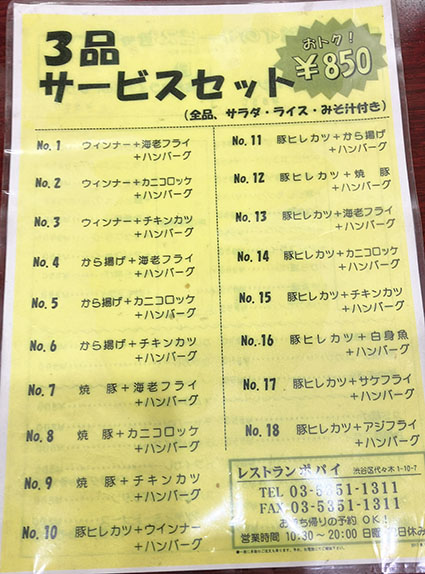 3品
サービスセット
おトク!
¥850
(全品、サラダ・ライス・みそ汁付き)
No.1 ウィンナー+海老フライ
+ハンバーグ
No.2 ウィンナー+カニコロッケ
+ハンバーグ
No.3 ウィンナー+チキンカツ
+ハンバーグ
No.4 から揚げ+海老フライ
+ハンバーグ
No.5 から揚げ+カニコロッケ
+ハンバーグ
No.6 から揚げ+チキンカツ
+ハンバーグ
No.7 焼 豚+海老フライ
+ハンバーグ
No.8 焼 豚+カニコロッケ
+ハンバーグ
No.9 焼 豚+チキンカツ
+ハンバーグ
No.10 豚ヒレカツ+ウインナー
+ハンバーグ
No.11 豚ヒレカツ+から揚げ
+ハンバーグ
No.12 豚ヒレカツ+焼 豚
+ハンバーグ
No.13 豚ヒレカツ+海老フライ
+ハンバーグ
No.14 豚ヒレカツ+カニコロッケ
+ハンバーグ
No.15 豚ヒレカツ+チキンカツ
+ハンバーグ
No.16 豚ヒレカツ+白身魚
+ハンバーグ
No.17 豚ヒレカツ+サケフライ
+ハンバーグ
No.18 豚ヒレカツ+アジフライ
+ハンバーグ
レストランポパイ 渋谷区代々木1-10-7
TEL 03-5351-1311
FAX 03-5351-1311
お持ち帰りの予約 OK!
営業時間 10:30~20:00 日曜・祝日休み